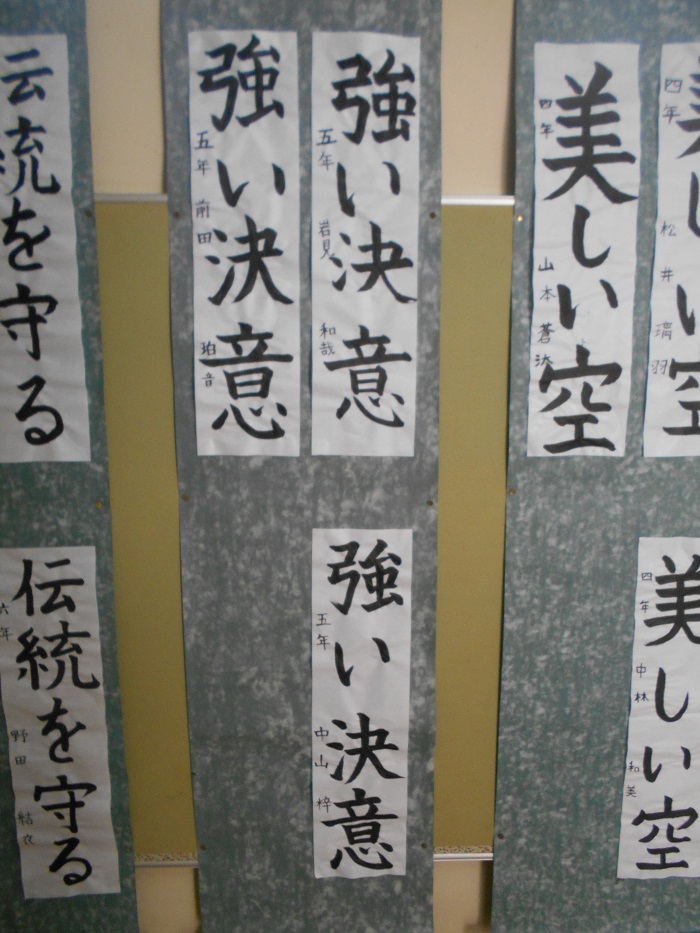 美しい空
四年 松井 璃羽
美しい空
四年 山本 蒼汰
美しい空
四年 中林 和美
強い決意
五年 岩見 和哉
強い決意
五年 前田 珀音
強い決意
五年 中山 梓
伝統を守る
伝統を守る
六年 野田 結衣